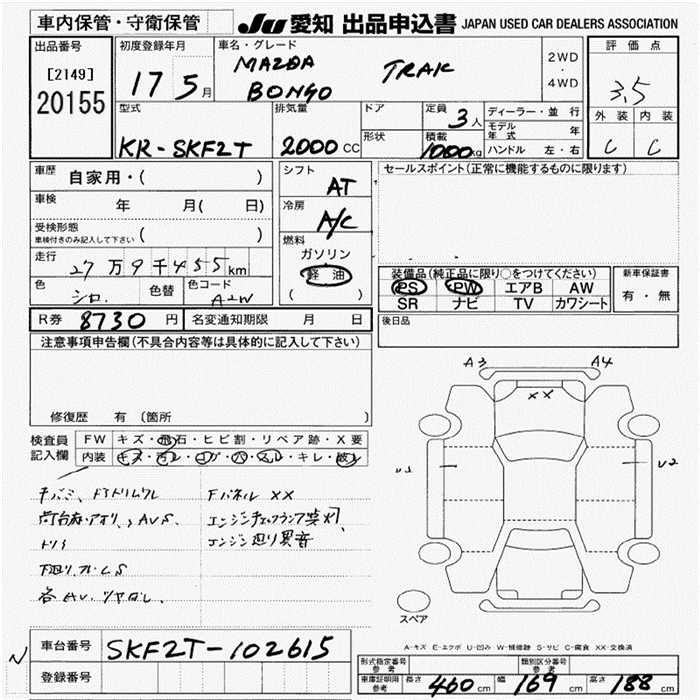 車内保管・守衛保管
JU 愛知 出品申込書 JAPAN USED CAR DEALERS ASSOCIATION
出品番号
[2149]
20155
初度登録年月
17 5月
車名・グレード
MAZDA
BONGO
TRAK
2WD
・
4WD
評価点
3.5
外装 内装
C C
型式
KR-SKF2T
排気量
2000 CC
ドア
形状
定員
3人
積載
1000kg
ディーラー・並行
モデル年式 年
ハンドル 左・右
車歴
自家用・( )
車検
年 月( 日)
受検形態
車検付きのみ記入して下さい ( )
走行
27万9千455km
色
シロ
色替
色コード
A2W
シフト
AT
冷房
A/C
燃料
ガソリン
軽油
( )
セールスポイント(正常に機能するものに限ります)
装備品(純正品に限り○をつけてください)
PS PW エアB AW
SR ナビ TV カワシート
新車保証書
有・無
R券 8730円
名変通知期限 月 日
後日品
注意事項申告欄(不具合内容等は具体的に記入して下さい)
修復歴 有 (箇所 )
検査員
記入欄
FW キズ・飛石・ヒビ割・リペア跡・X要
内装 キズ・汚レ・コゲ・ハ・スレ・キレ・破レ
Fパネル XX
エンジンチェックランプ点灯
エンジン廻り異音
下廻りフレーム S
A3 A4
XX
U1 U2
スペア
A-キズ E-エクボ U-凹み W-補修跡 S-サビ C-腐食 XX-交換済
N
車台番号 SKF2T-102615
登録番号
形式指定番号
参考
類別区分番号
参考
車庫証明用
参考
長さ 460cm 幅 169cm 高さ 188cm